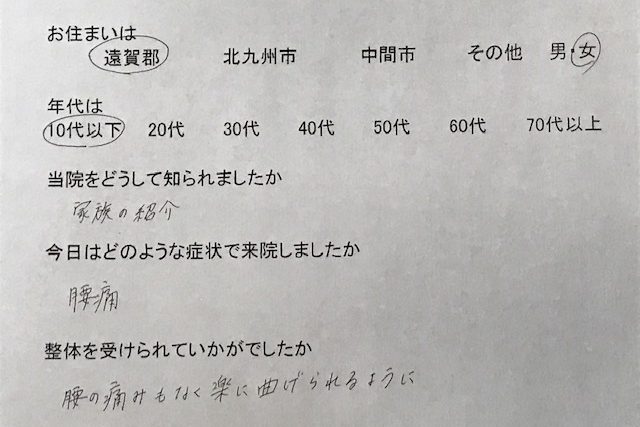 お住まいは
遠賀郡 北九州市 中間市 その他 男・女
年代は
10代以下 20代 30代 40代 50代 60代 70代以上
当院をどうして知られましたか
家族の紹介
今日はどのような症状で来院しましたか
腰痛
整体を受けられていかがでしたか
腰の痛みもなく楽に曲げられるように